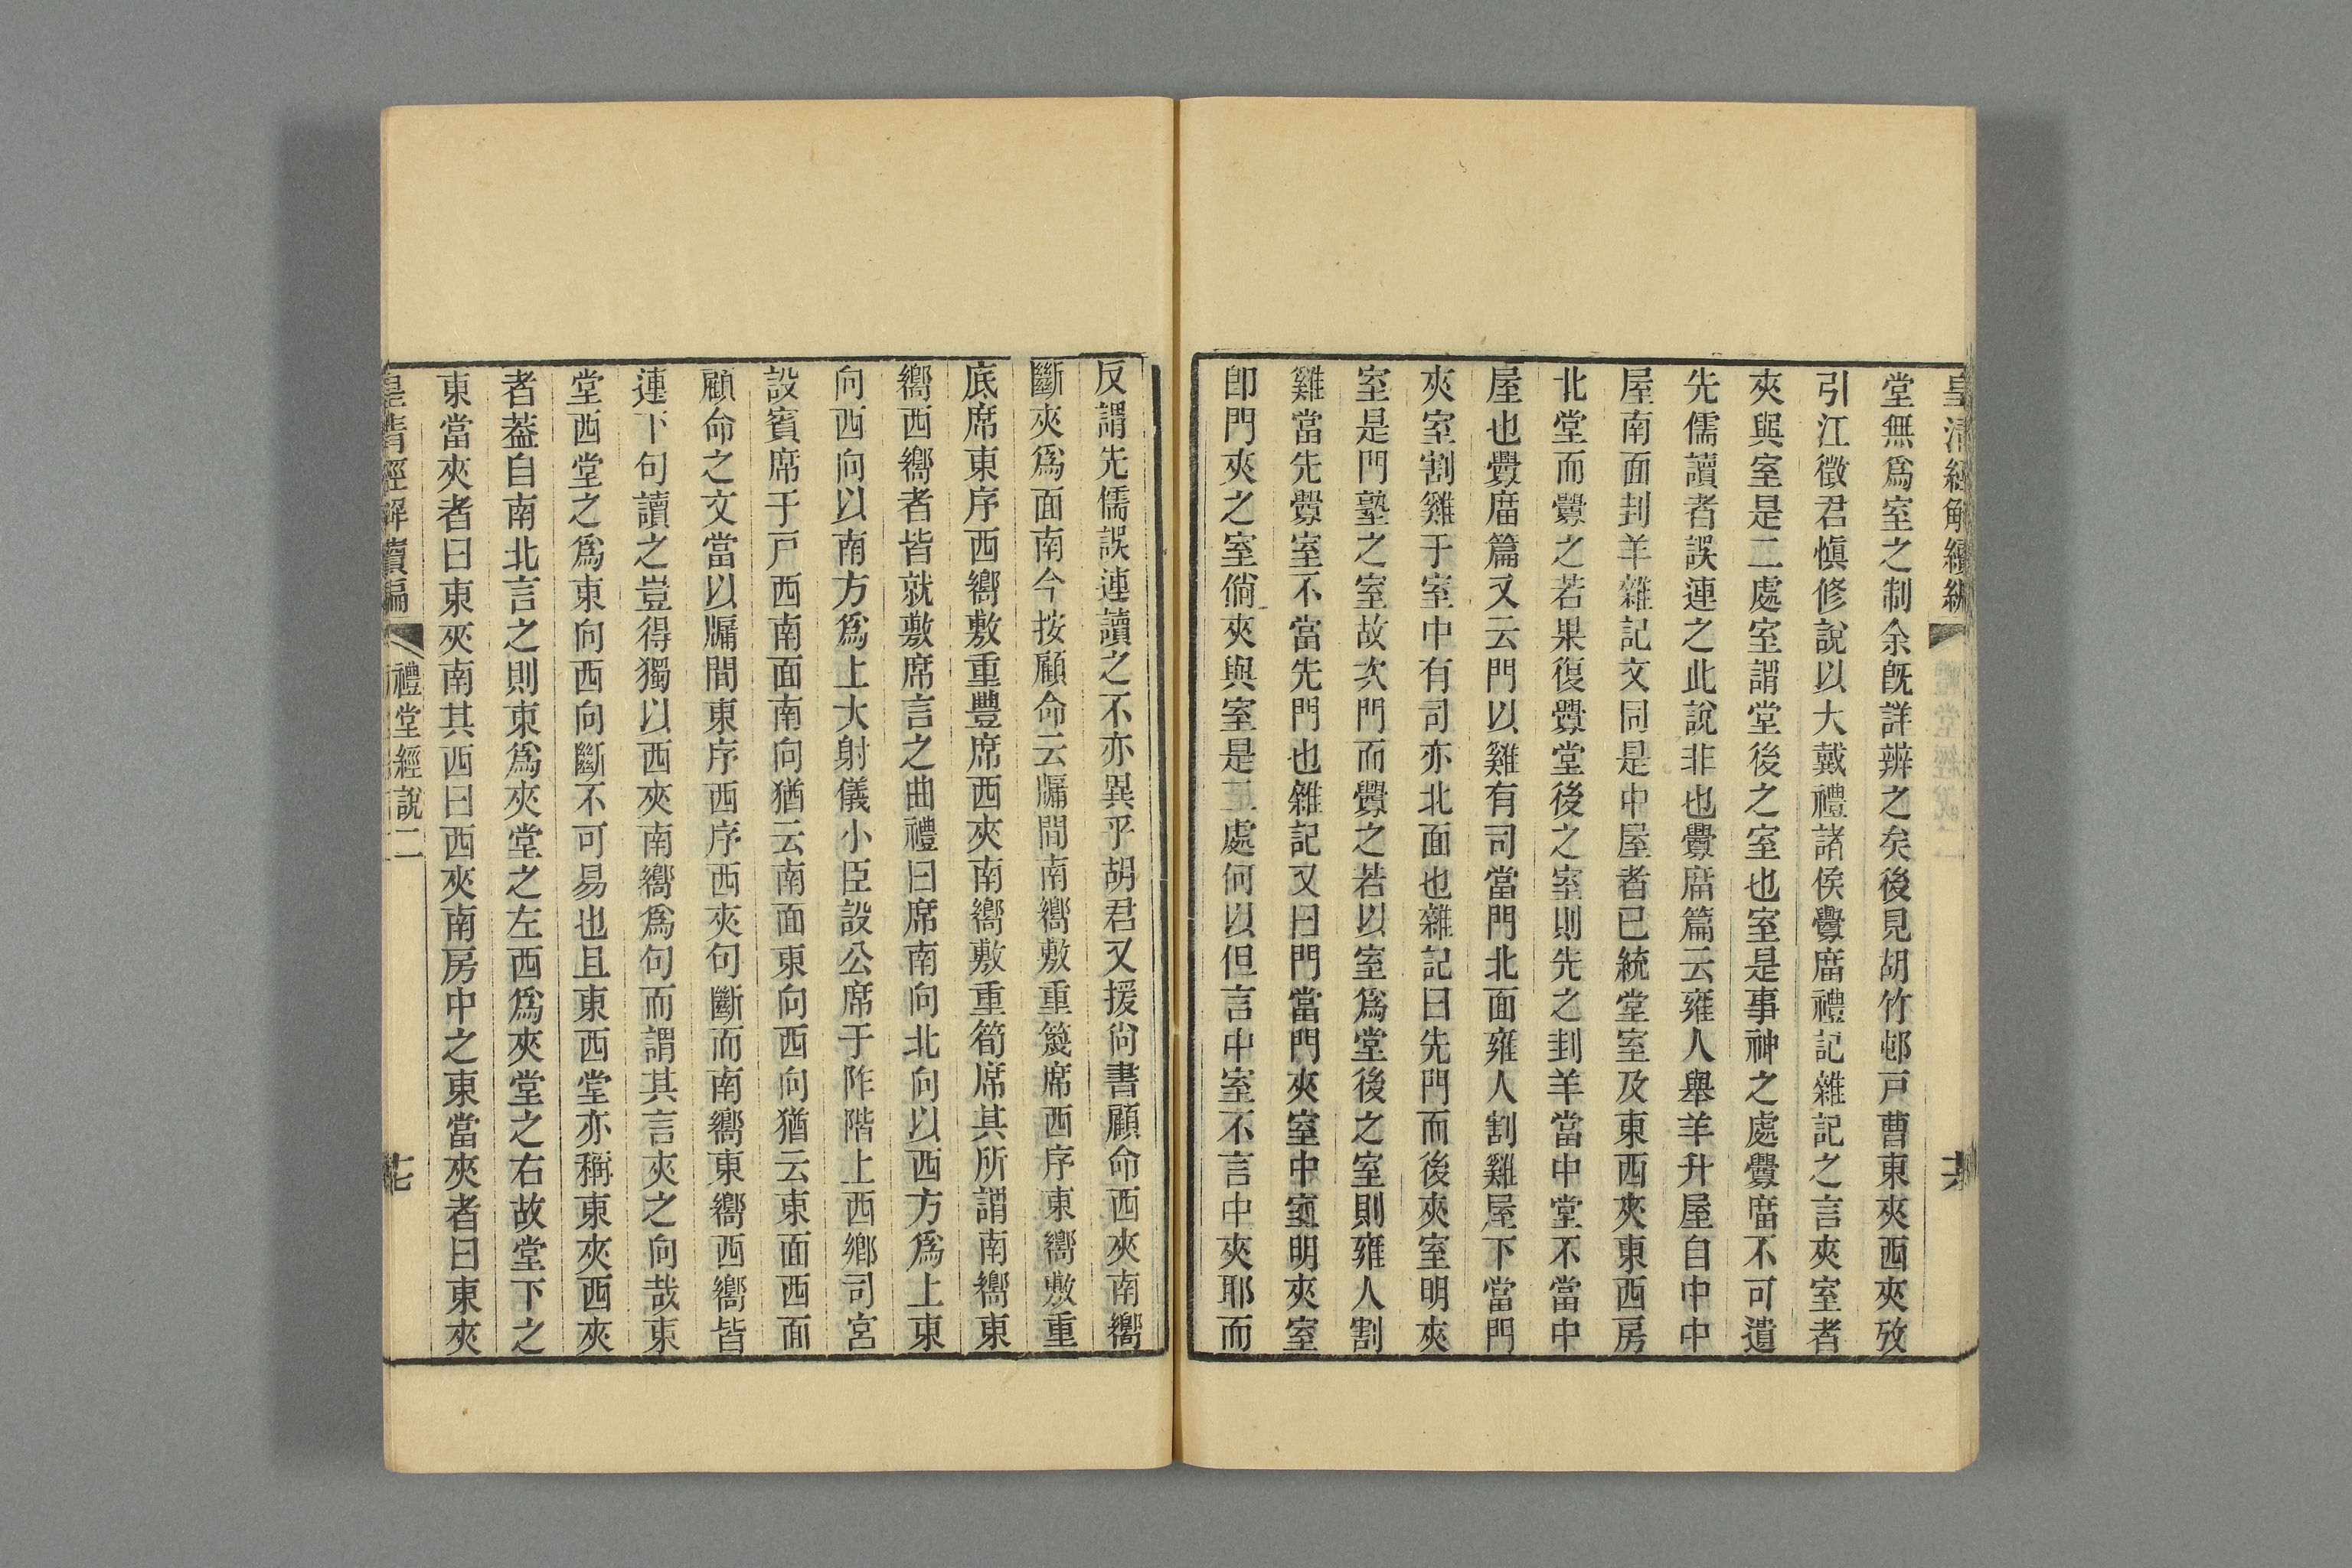 皇清經解續編
堂無爲室之制余旣詳辨之矣後見胡竹邨戸曹東夾西夾攷
引江徵君愼修說以大戴禮諸侯釁庿禮記雜記之言夾室者
夾與室是二處室謂堂後之室也室是事神之處釁庿不可遺
先儒讀者誤連之此說非也釁庿篇云雍人舉羊升屋自中中
屋南面刲羊雜記文同是中屋者已統堂室及東西夾東西房
北堂而釁之若果復釁堂後之室則先之刲羊當中堂不當中
屋也釁庿篇又云門以雞有司當門北面雍人割雞屋下當門
夾室割雞于室中有司亦北面也雜記曰先門而後夾室明夾
室是門塾之室故次門而釁之若以室爲堂後之室則雍人割
雞當先釁室不當先門也雜記又曰門當門夾室中室明夾室
卽門夾之室倘夾與室是二處何以但言中室不言中夾耶而
反謂先儒誤連讀之不亦異乎胡君又援尙書顧命西夾南嚮
斷夾爲面南今按顧命云牖間南嚮敷重篾席西序東嚮敷重
底席東序西嚮敷重豐席西夾南嚮敷重筍席其所謂南嚮東
嚮西嚮者皆就敷席言之曲禮曰席南向北向以西方爲上東
向西向以南方爲上大射儀小臣設公席于阼階上西鄉司宮
設賓席于戸西南面南向猶云南面東向西向猶云東面西面
顧命之文當以牖間東序西序西夾句斷而南嚮東嚮西嚮皆
連下句讀之豈得獨以西夾南嚮爲句而謂其言夾之向哉東
堂西堂之爲東向西向斷不可易也且東西堂亦稱東夾西夾
者葢自南北言之則東爲夾堂之左西爲夾堂之右故堂下之
東當夾者曰東夾南其西曰西夾南房中之東當夾者曰東夾
皇清經解續編
禮堂經說二